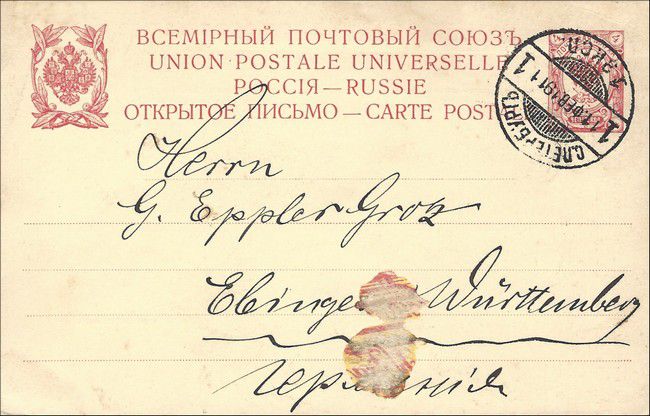 ВСЕМІРНЫЙ ПОЧТОВЫЙ СОЮЗЪ.
UNION POSTALE UNIVERSELLE
РОССІЯ — RUSSIE
ОТКРЫТОЕ ПИСЬМО — CARTE POST
С.ПЕТЕРБУРГЪ
1 ЭКСП.
1
1
Herrn
G. Eppler Grotz
Ebingen Württemberg
Германія